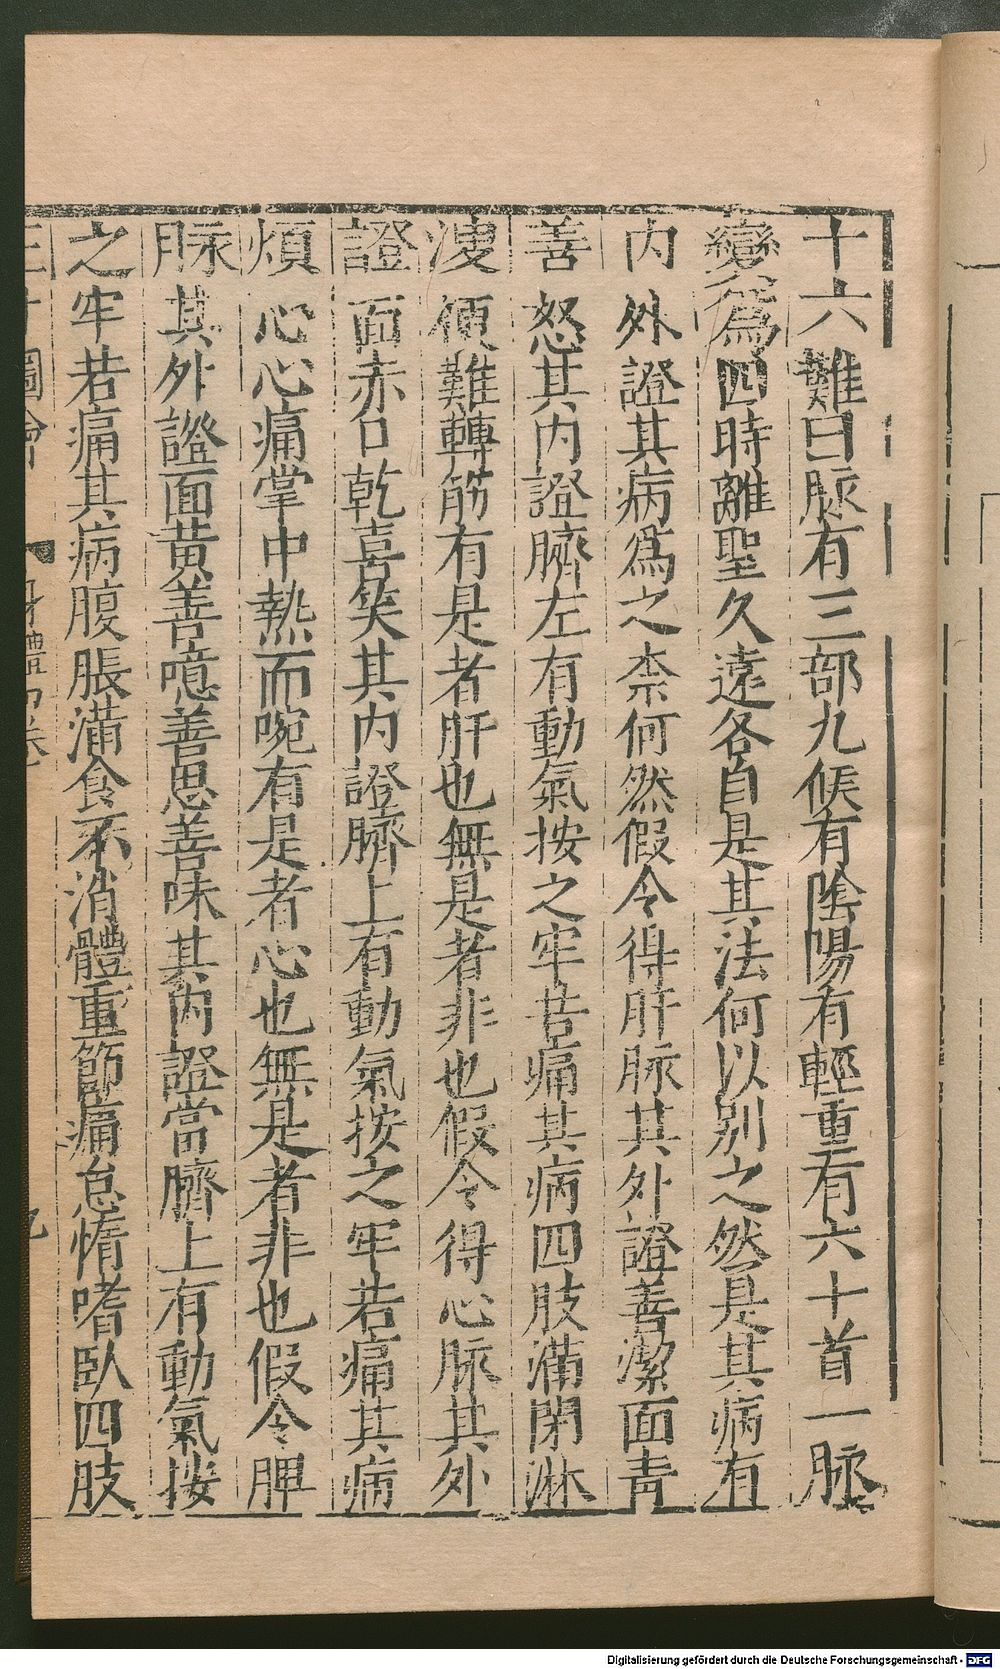 十六難曰脉有三部九候有陰陽有輕重有六十首一脉
變爲四時離聖久遠各自是其法何以别之然是其病有
内外證其病爲之柰何然假令得肝脉其外證善潔面青
善怒其内證臍左有動氣按之牢若痛其病四肢滿閉淋
溲便難轉筋有是者肝也無是者非也假令得心脉其外
證面赤口乾喜笑其内證臍上有動氣按之牢若痛其病
煩心心痛掌中熱而啘有是者心也無是者非也假令脾
脉其外證面黄善噫善思善味其内證當臍上有動氣按
之牢若痛其病腹脹滿食不消體重節痛怠惰嗜臥四肢
三才圖會
身體四卷
九
Digitalisierung gefördert durch die Deutsche Forschungsgemeinschaft - DFG